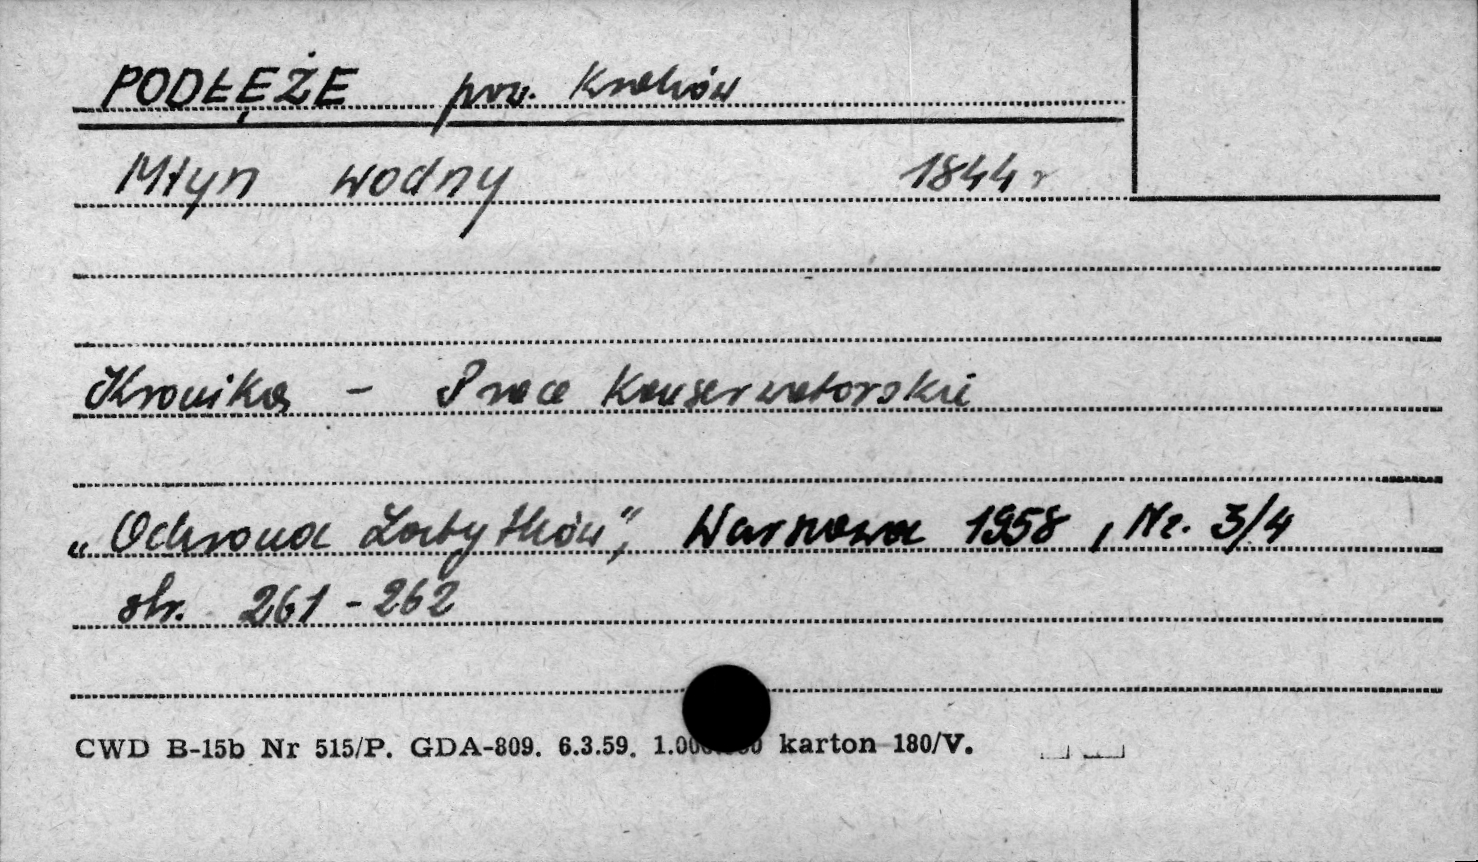 PODŁĘŻE pow. Kraków
Młyn wodny 1844 r
Kronika - Prace Konserwatorskie
„Ochrona Zabytków”, Warszawa 1958, Nr. 3/4
str. 261 - 262
CWD B-15b Nr 515/P. GDA-809. 6.3.59. karton 180/V.